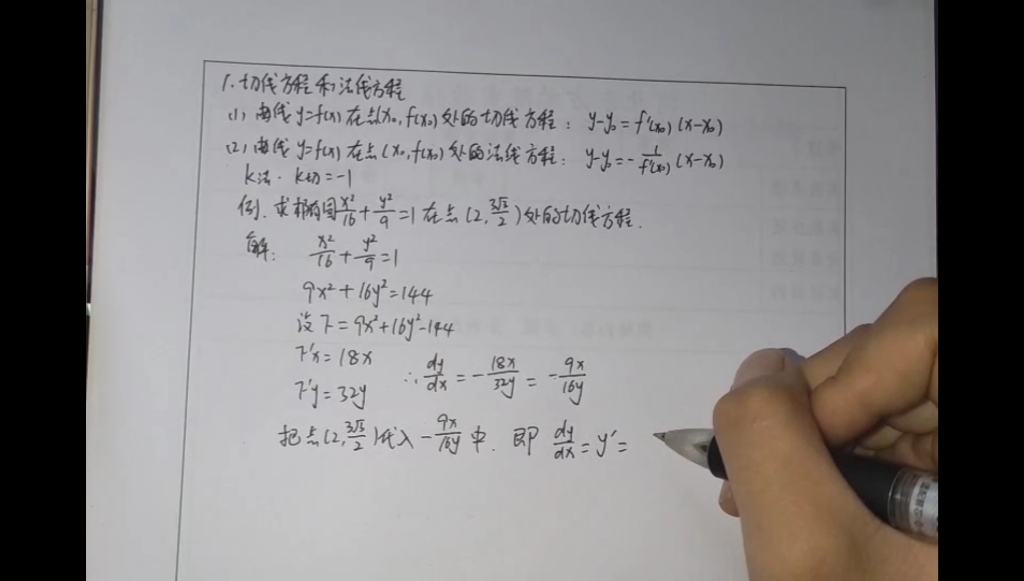 1.切线方程和法线方程
(1) 曲线 y=f(x) 在点(x₀, f(x₀) 处的切线方程: y-y₀=f'(x₀) (x-x₀)
(2) 曲线 y=f(x) 在点 (x₀, f(x₀) 处的法线方程: y-y₀=-1/f'(x₀) (x-x₀)
K法 · K切=-1
例. 求椭圆x²/16+y²/9=1在点(2, 3√3/2)处的切线方程.
解: x²/16+y²/9=1
9x²+16y²=144
设F=9x²+16y²-144
F'x=18x
F'y=32y ∴dy/dx=-18x/32y=-9x/16y
把点(2, 3√3/2)代入-9x/16y中. 即 dy/dx=y'=